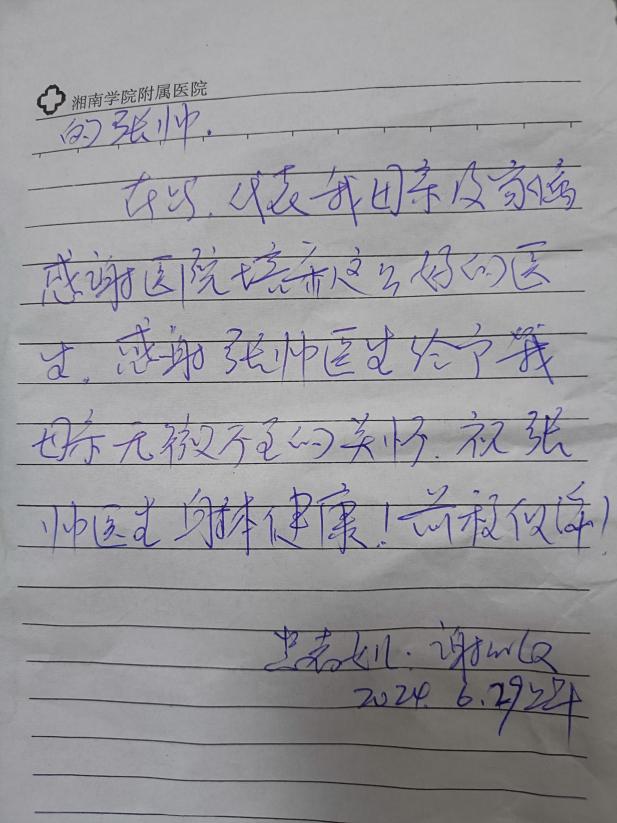 湘南学院附属医院
的张帅.
在此,代表我母亲及家属
感谢医院培养这么好的医
生。感谢张帅医生给予我
母亲无微不至的关怀.祝张
帅医生身体健康!前程似锦!
患者女儿:谢
2024.6.29